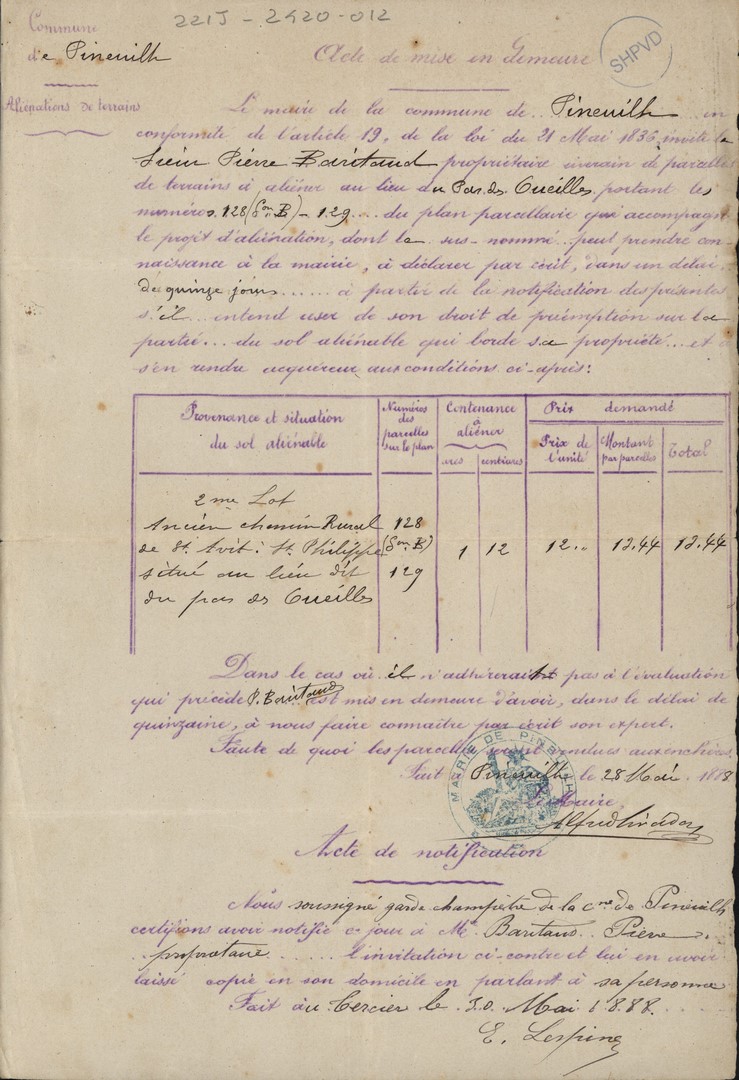 221J - 2420-012
SHPVD
Commune
de Pineuilh
Aliénations de terrains
Acte de mise en demeure
Le maire de la commune de Pineuilh en
conformité de l'article 19, de la loi du 21 Mai 1836, invite le
Sieur Pierre Baritaud propriétaire riverain de parcelles
de terrains à aliéner au lieu du Pas des Oueilles, portant les
numéros 128 (Son B) - 129 du plan parcellaire qui accompagne
le projet d'aliénation, dont le sus-nommé peut prendre con-
naissance à la mairie, à déclarer par écrit, dans un délai
de quinze jours à partir de la notification des présentes
s'il entend user de son droit de préemption sur la
partie du sol aliénable qui borde sa propriété et à
s'en rendre acquéreur aux conditions ci-après:
Provenance et situation du sol aliénable
Numéros des parcelles sur le plan
Contenance à aliéner
ares
centiares
Prix demandé
Prix de l'unité
Montant par parcelles
Total
2me Lot
Ancien chemin Rural 128
de St. Avit à St. Philippe (Son B) 1 12 12 " 13.44 13.44
situé au lieu dit 129
du pas des Oueilles
Dans le cas où il n'adhérerait pas à l'évaluation
qui précède P. Baritaud est mis en demeure d'avoir, dans le délai de
quinzaine, à nous faire connaître par écrit son expert.
Faute de quoi les parcelles seront vendues aux enchères.
Fait à Pineuilh le 28 Mai 1888
Le Maire,
MAIRIE DE PINEUILH
Acte de notification
Nous soussigné garde champêtre de la cne de Pineuilh
certifions avoir notifié ce jour à Mr Baritaud Pierre
propriétaire l'invitation ci-contre et lui en avoir
laissé copie en son domicile en parlant à sa personne
Fait au Cercier le 30 Mai 1888.
E. Lespine